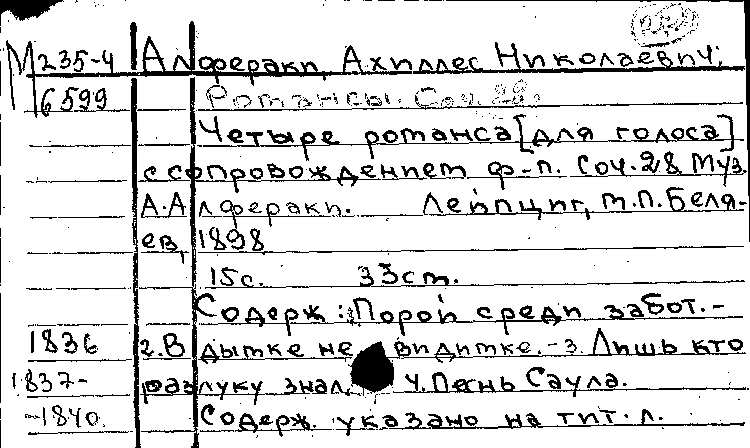 М 235-4 Алфераки, Ахиллес Николаевич;
6599 Романсы. Соч. 28.
Четыре романса [для голоса]
с сопровождением ф-п. Соч. 28 Муз.
А. Алфераки. Лейпциг, М.П. Беля-
ев, 1898
15 с. 33 см.
Содерж: Порой среди забот. -
1836 2. В дымке не видимке. - 3. Лишь кто
1837- разлуку знал. 4. Песнь Саула.
-1840 Содерж. указано на тит. л.